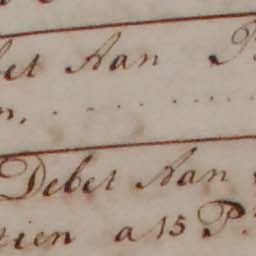 et Aan P
n.
Debet Aan
tien a 15 P.